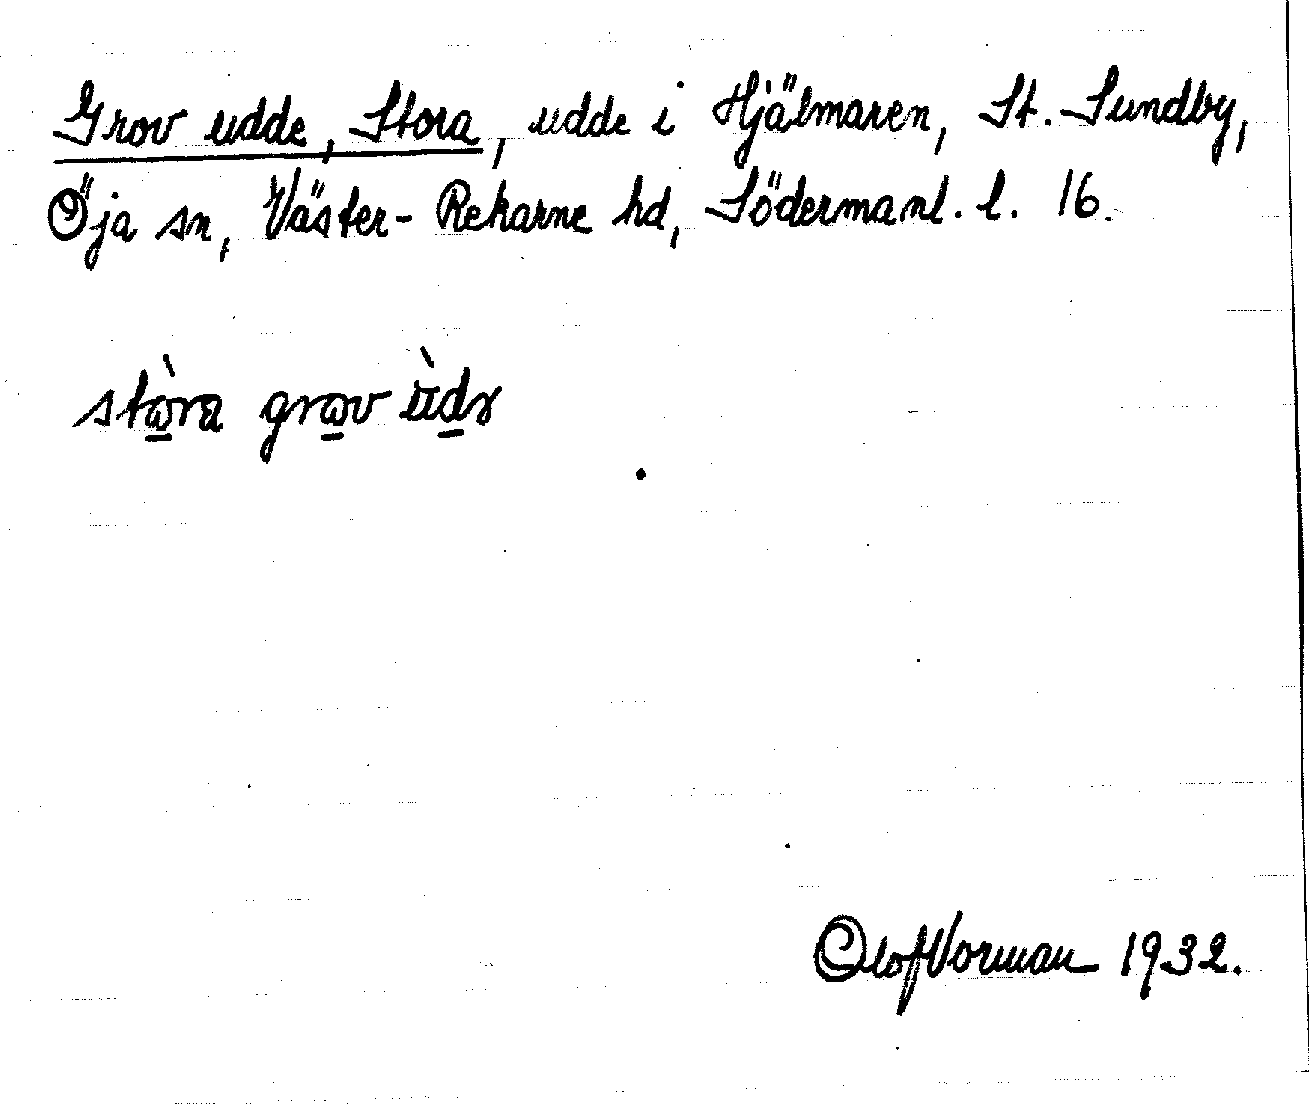 Grov udde, Stora, udde i Hjälmaren, St. Sundby,
Öja sn, Väster-Rekarne hd, Södermanl. l. 16.
stòra grov ùdɤ
Olof Vorman 1932.